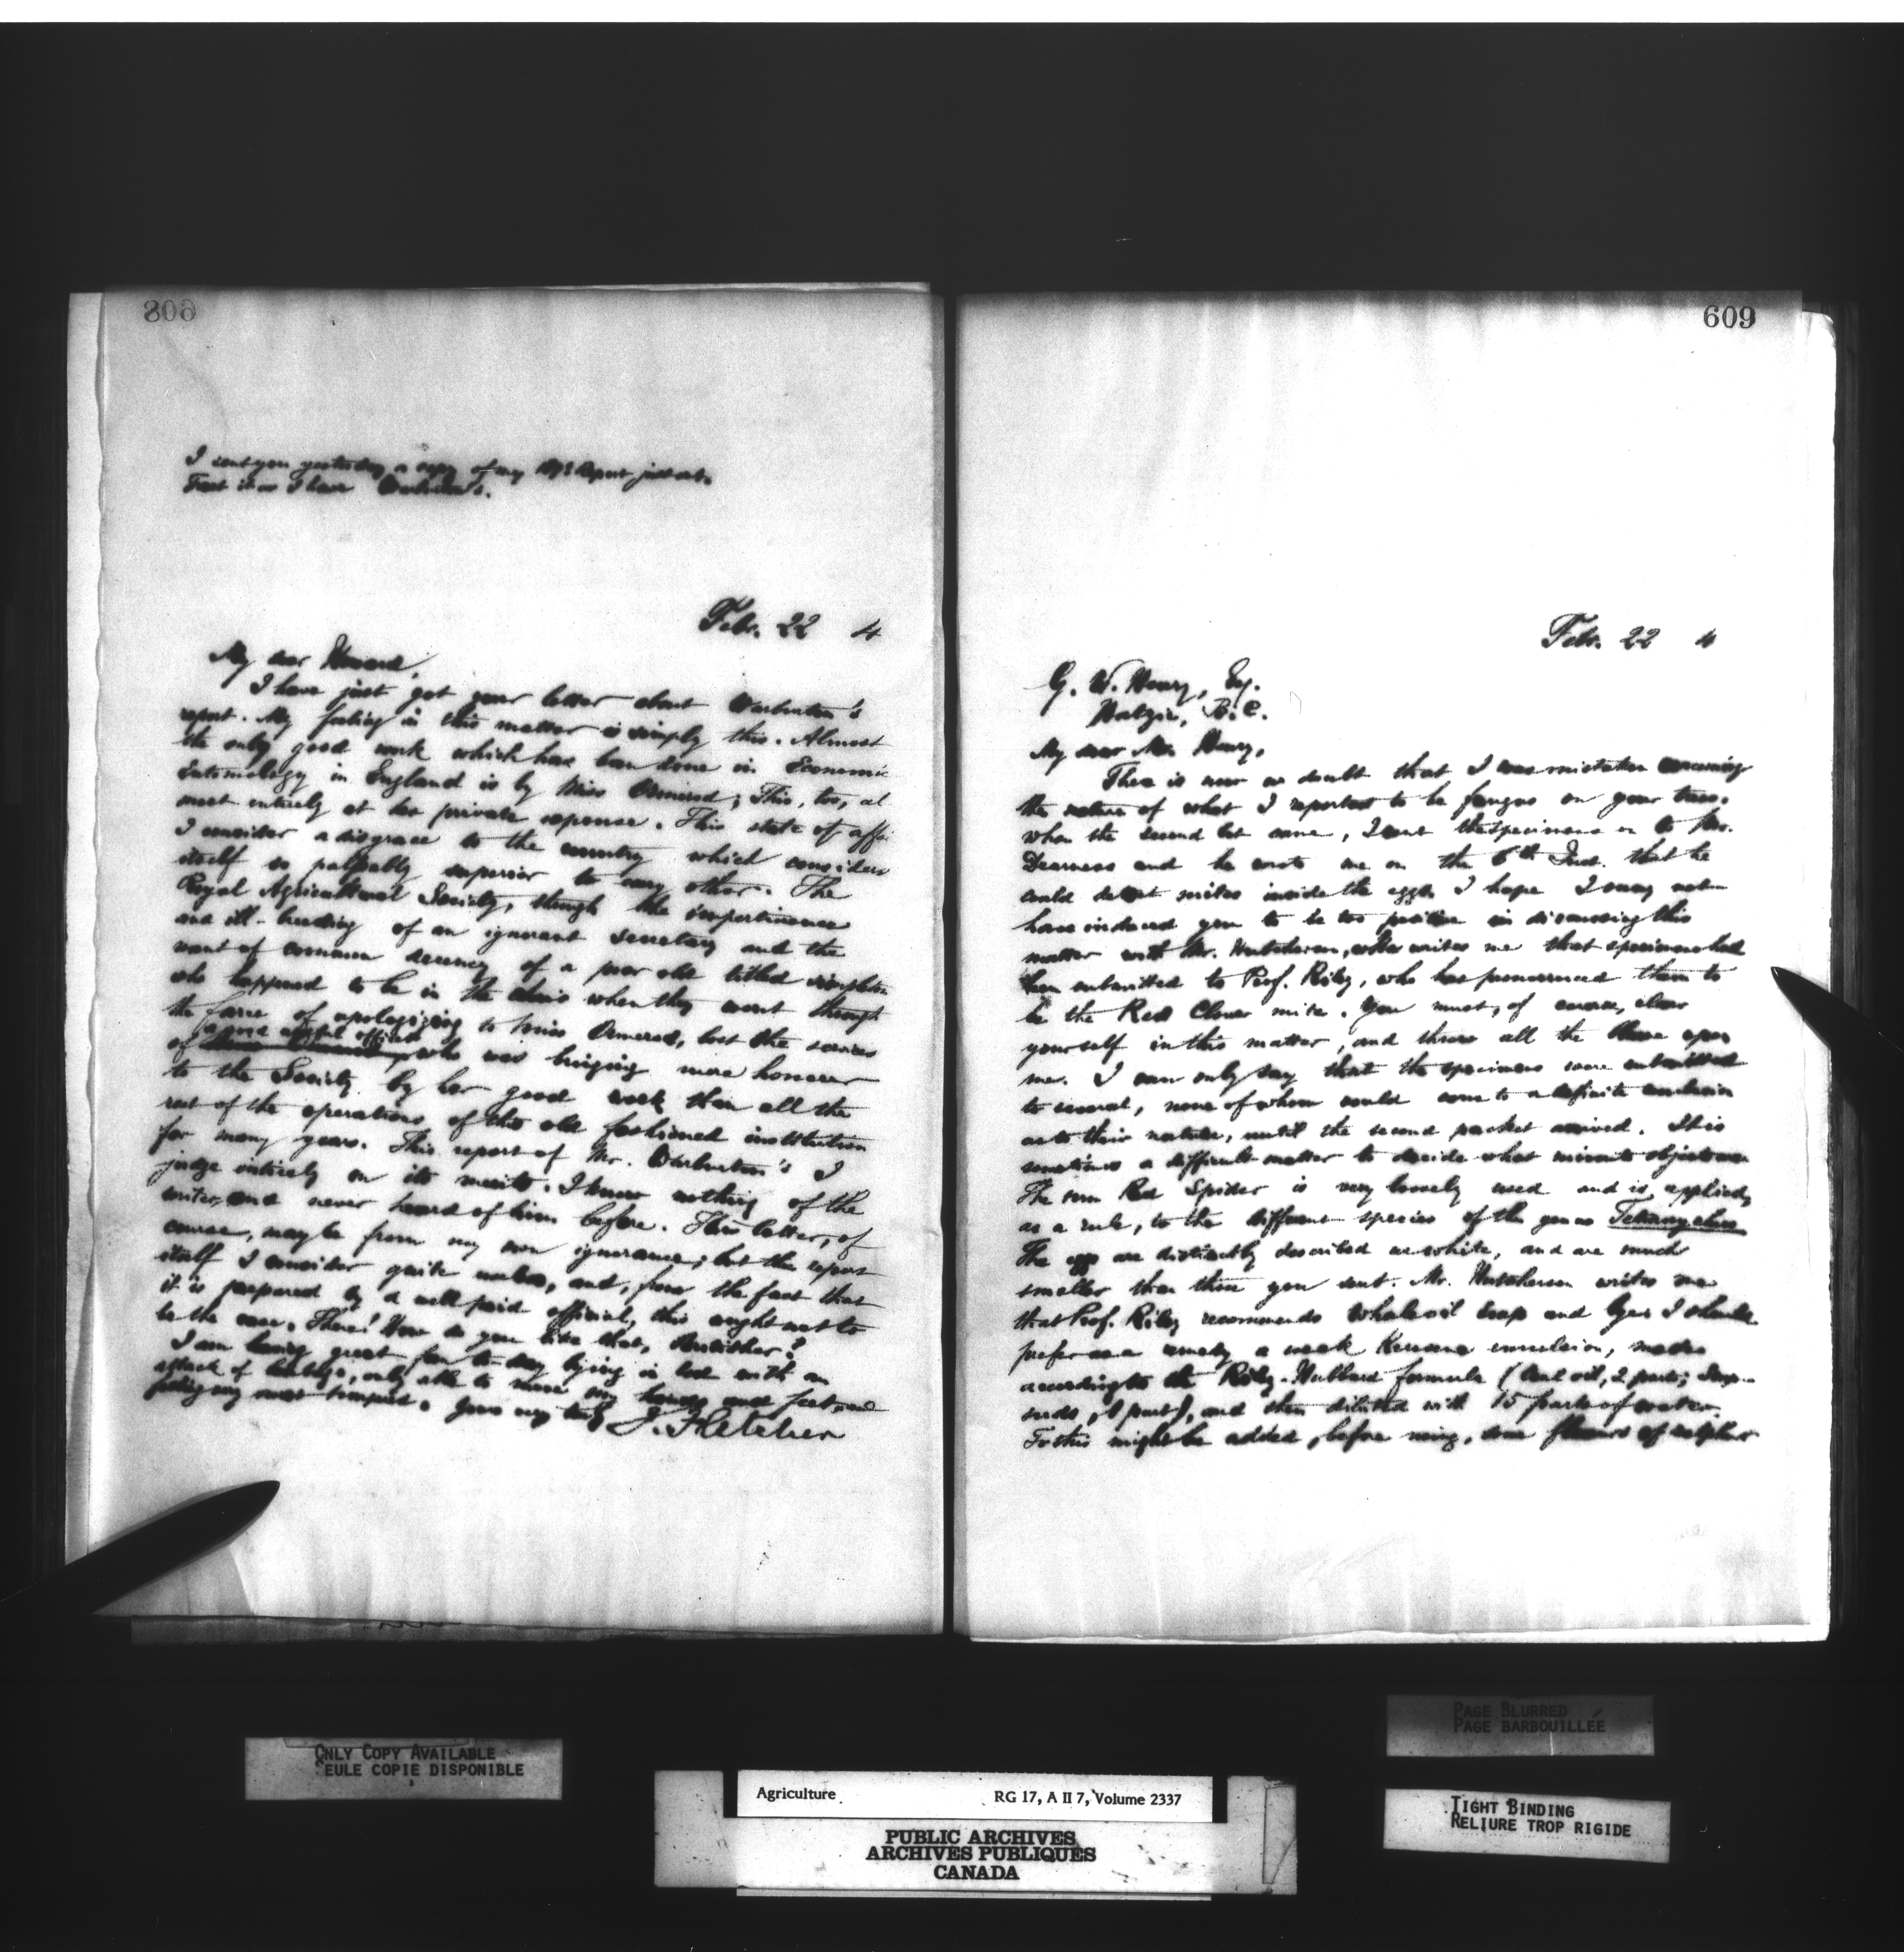 608
I sent you yesterday a copy of my 1893 Report just out.
Treat it as I have Warburton's.
Febr. 22 4
My dear Howard,
I have just got your letter about Warburton's
report. My feeling in this matter is simply this. Almost
the only good work which has been done in Economic
Entomology in England is by Miss Ormerod; This, too, al
most entirely at her private expense. This state of affairs
I consider a disgrace to the country which considers
itself so palpably superior to any other. The
Royal Agricultural Society, through the impertinence
and ill-breeding of an ignorant secretary and the
want of common decency of a poor old titled simpleton
who happened to be in the chair when they went through
the farce of apologizing to Miss Ormerod, lost the services
of a most useful officer who was bringing more honour
to the Society by her good work than all the
rest of the operations of this old fashioned institution
for many years. This report of Mr. Warburton's I
judge entirely on its merits. I know nothing of the
writer, and never heard of him before. This latter, of
course, may be from my own ignorance; but the report
itself I consider quite useless, and, from the fact that
it is prepared by a well paid official, this ought not to
be the case. There! How do you like that, Britisher?
I am having great fun to-day lying in bed with an
attack of lumbago, only able to move my hands and feet, and
feeling my worst tempered. Yours very truly J. Fletcher
609
Febr. 22 4
G. W. Henry, Esq.
Hatzic, B.C.
My dear Mr. Henry,
There is now no doubt that I was mistaken concerning
the nature of what I reported to be fungus on your trees.
When the second lot came, I sent the specimens on to Mr.
Dearness and he wrote me on the 6th Inst. that he
could detect mites inside the eggs. I hope I may not
have induced you to be too positive in discussing this
matter with Mr. Hutcherson, who writes me that specimens had
been submitted to Prof. Riley, who has pronounced them to
be the Red Clover mite. You must, of course, clear
yourself in this matter, and throw all the blame upon
me. I can only say that the specimens were submitted
to several, none of whom could come to a definite conclusion
as to their nature, until the second packet arrived. It is
sometimes a difficult matter to decide what minute objects are
The term Red Spider is very loosely used and is applied,
as a rule, to the different species of the genus Tetranychus
The eggs are distinctly described as white, and are much
smaller than those you sent. Mr. Hutcherson writes me
that Prof. Riley recommends whale oil soap and lye. I should
prefer as a remedy a weak Kerosene emulsion, made
according to the Riley-Hubbard formula (Coal oil, 2 parts; Soap-
suds, 1 part), and then diluted with 15 parts of water.
To this might be added, before using, some flowers of sulphur
ONLY COPY AVAILABLE
SEULE COPIE DISPONIBLE
PAGE BLURRED
PAGE BARBOUILLÉE
TIGHT BINDING
RELIURE TROP RIGIDE
Agriculture RG 17, A II 7, Volume 2337
PUBLIC ARCHIVES
ARCHIVES PUBLIQUES
CANADA